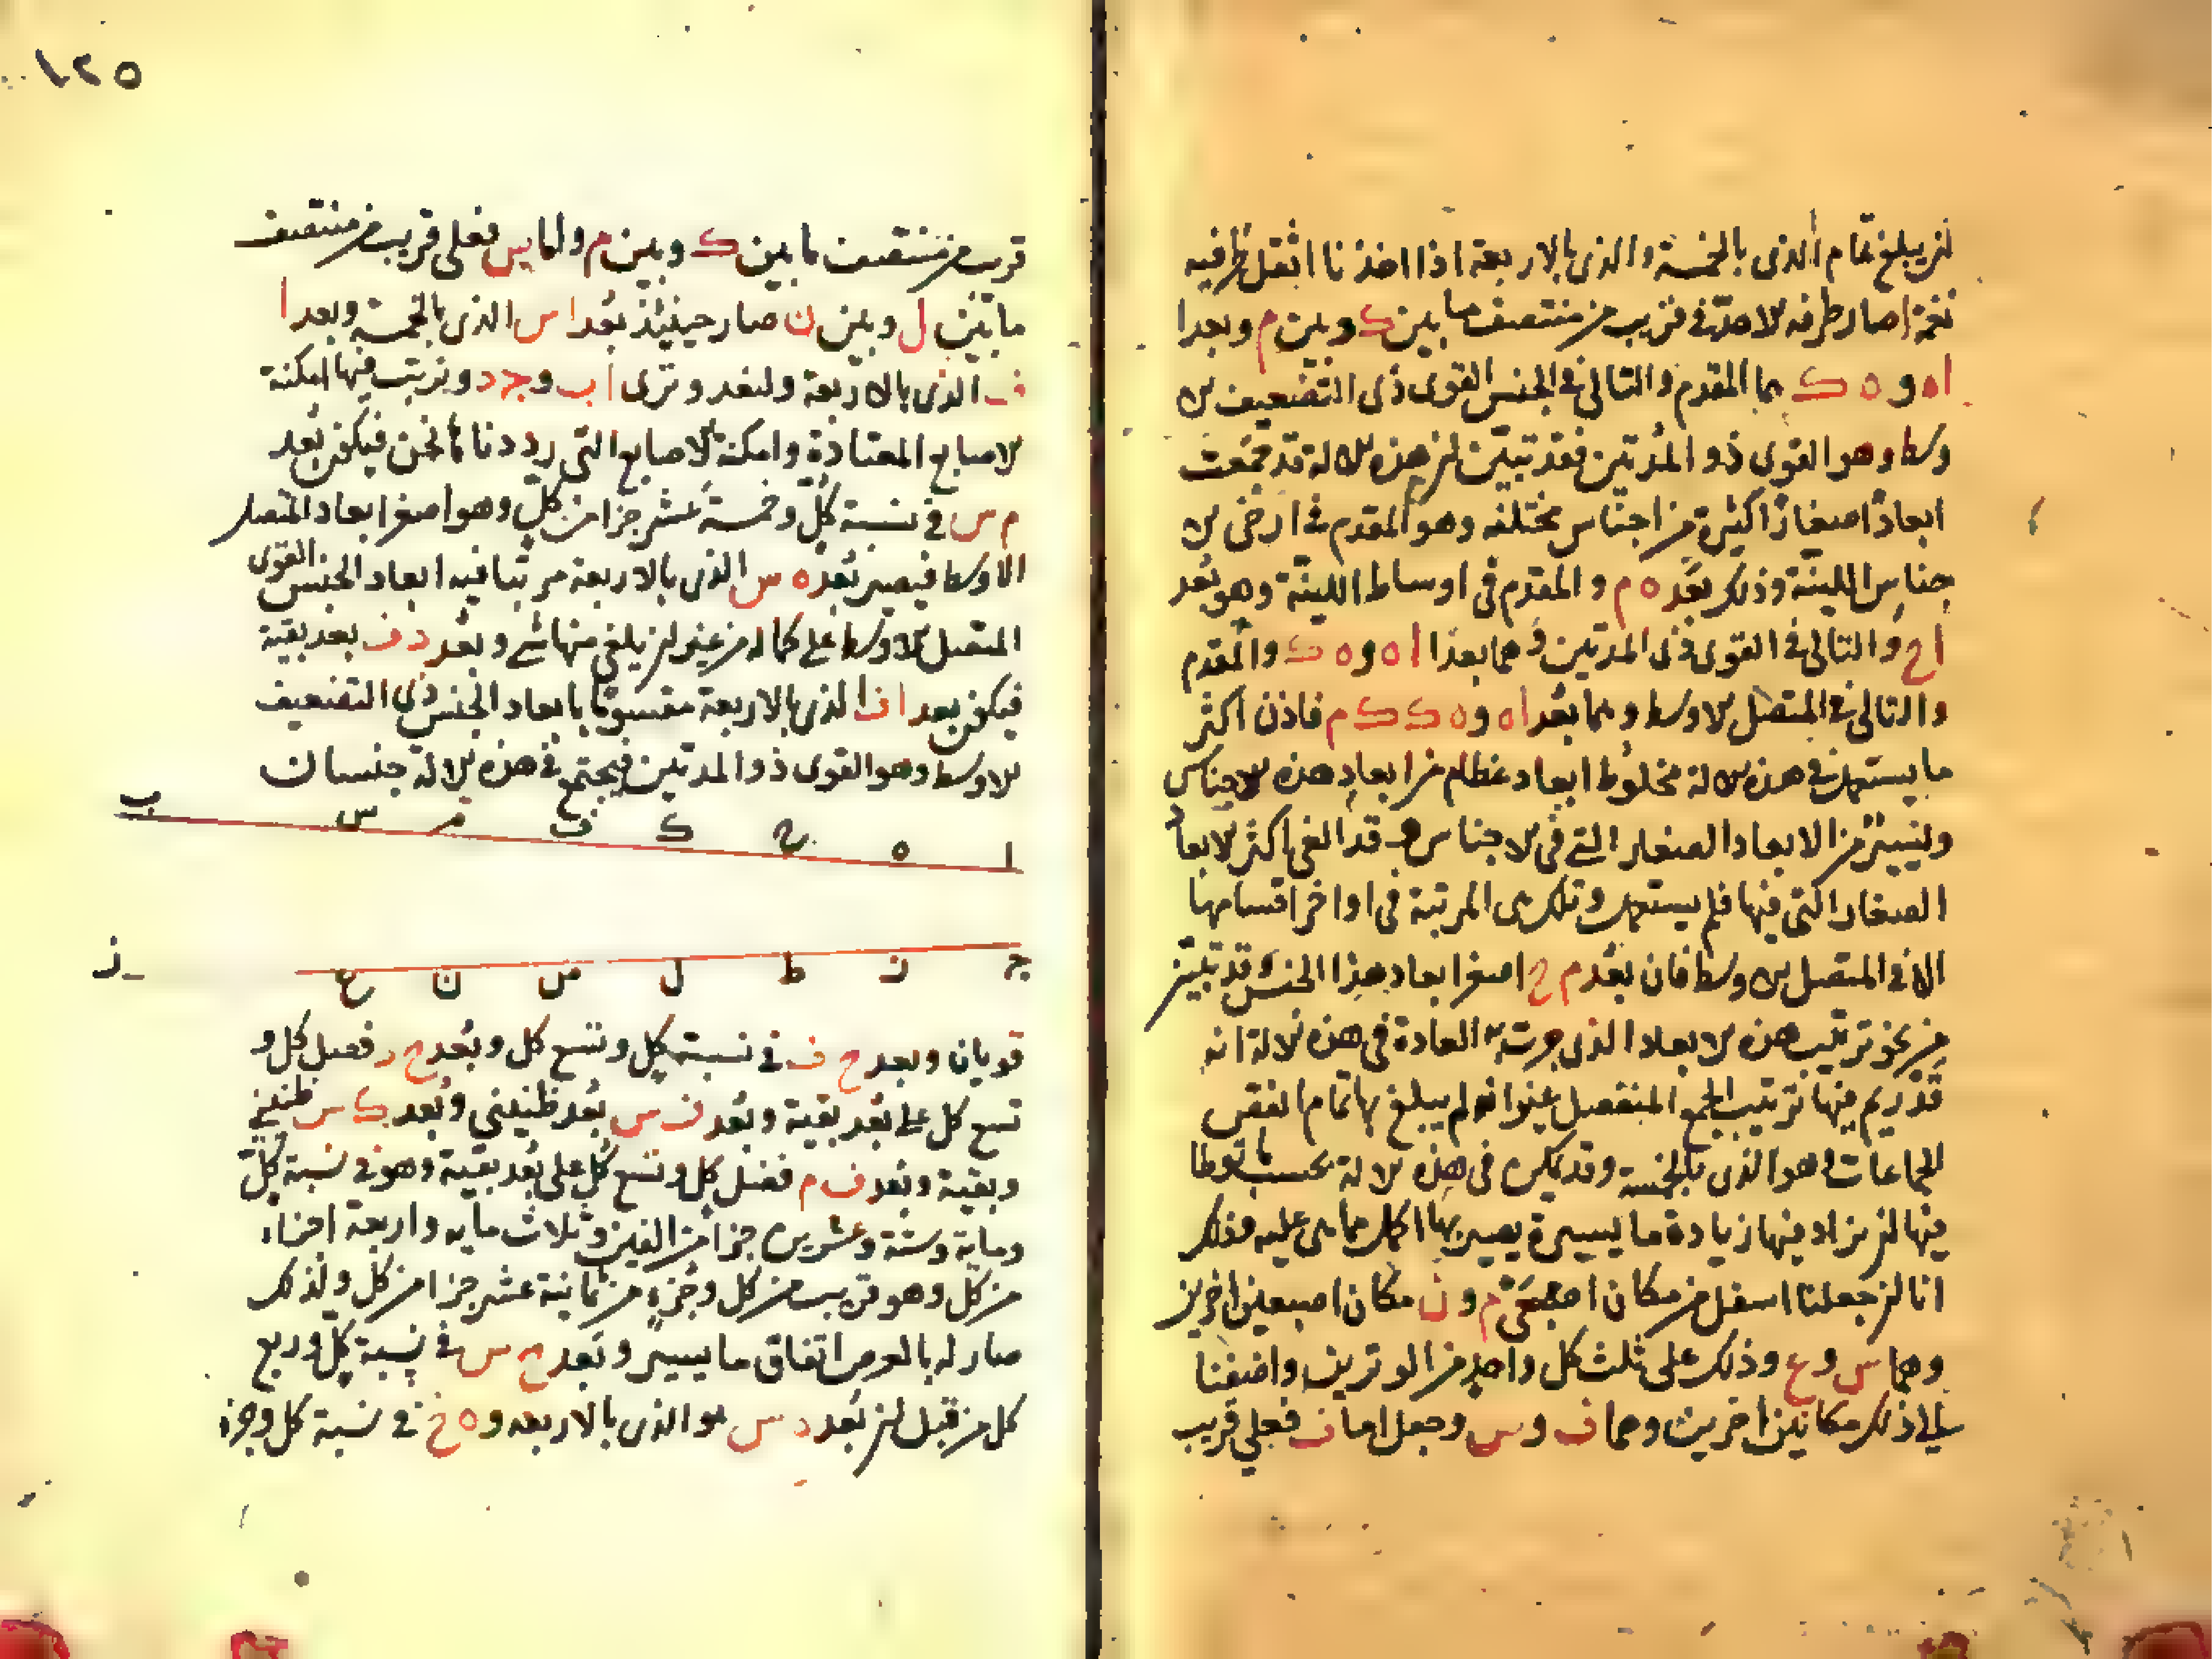 لن يبلغ تمام الذى بالخمسة والذى بالاربعة اذا اخذنا اثقل طرفيه
نغمة ا صار طرفه الاحد فى قريب من منتصف ما بين ك وبين م وبعدا
ا ه و ه ك هما المقدم والتالى فى الجنس القوى ذى التضعيف الا
وسط وهو القوى ذو المدتين فقد تبين ان هذه الالة قد جمعت
ابعادا صغارا كثيرة من اجناس مختلفة وهو المقدم فى ارخى الا
جناس اللينة وذلك بعد ه م والمقدم فى اوساط اللينة وهو بعد
ا ح والتالى فى القوى ذى المدتين وهما بعدا ا ه و ه ك والمقدم
والتالى فى المتصل الاوسط وهما بعدا ه و ه ك ك م فاذن اكثر
ما يستعمل فى هذه الالة مخلوط ابعاد عظام من ابعاد هذه الاجناس
ويتبين من الابعاد الصغار التى فى الاجناس قد الغى اكثر الابعا
الصغار التى فيها فلم يستعمل وتلك هى المرتبة فى اواخر اقسامها
الا فى المتصل الاوسط فان بعد م ح اصغر ابعاد هذا الجنس وقد تبين
من نحو ترتيب هذه الابعاد الذى جرت به العادة فى هذه الالة انه
قد ريم فيها ترتيب الجمع المنفصل غير انه لم يبلغ بها تمام انقص
الجماعات وهو الذى بالخمسة وقد يمكن فى هذه الالة بحسب ما توطا
فيها ان يزاد فيها زيادة ما يسيرة يصير بها اكمل مما هى عليه وذلك
انا ان جعلنا اسفل من مكان اصبعى م و ن مكان اصبعين اخرين
وهما س و ع وذلك على ثلث كل واحد من الوترين واضفنا
الى ذلك مكانين اخرين وهما ف و س وجعل اما ف فعلى قريب
١٢٥
قريب من منتصف ما بين ك وبين م واما س فعلى قريب من منتصف
ما بين ل وبين ن صار حينئذ بعد ا س الذى بالخمسة وبعد ا
ف الذى بالاربعة ولنعد وترى ا ب و ج د ونرتب فيها امكنة
الاصابع المعتادة وامكنة الاصابع التى زدناها نحن فيكون بعد
م س فى نسبة كل وخمسة عشر جزا من كل وهو اصغر ابعاد المتصل
الاوسط فيصير بعد ه س الذى بالاربعة مرتبا فيه ابعاد الجنس القوى
المتصل الاوسط على كماله من غير ان يلغى منها شى وبعد د ف بعد بقية
فيكون بعد ا ف الذى بالاربعة مقسوما بابعاد الجنس ذى التضعيف
الاوسط وهو القوى ذو المدتين فيجتمع فى هذه الالة جنسان
ا ه ح ك ف م س ب
ج ز ط ل ص ن ع د
قويان وبعد ح ف فى نسبة كل وتسع كل وبعد ح د فضل كل و
تسع كل على بعد بقية وبعد ف س بعد طنينى وبعد ك س طنينى
وبقية وبعد ف م فضل كل وتسع كل على بعد بقية وهو فى نسبة كل
وماية وستة وعشرين جزا من الفين وثلاث مايه واربعة اجزاء
من كل وهو قريب من كل وجزء من ثمانية عشر جزا من كل ولذلك
صار له بالعرض اتفاق ما يسير وبعد ح س فى نسبة كل وربع
كل من قبل ان بعد د س هو الذى بالاربعه و ه ح فى نسبة كل وجزء